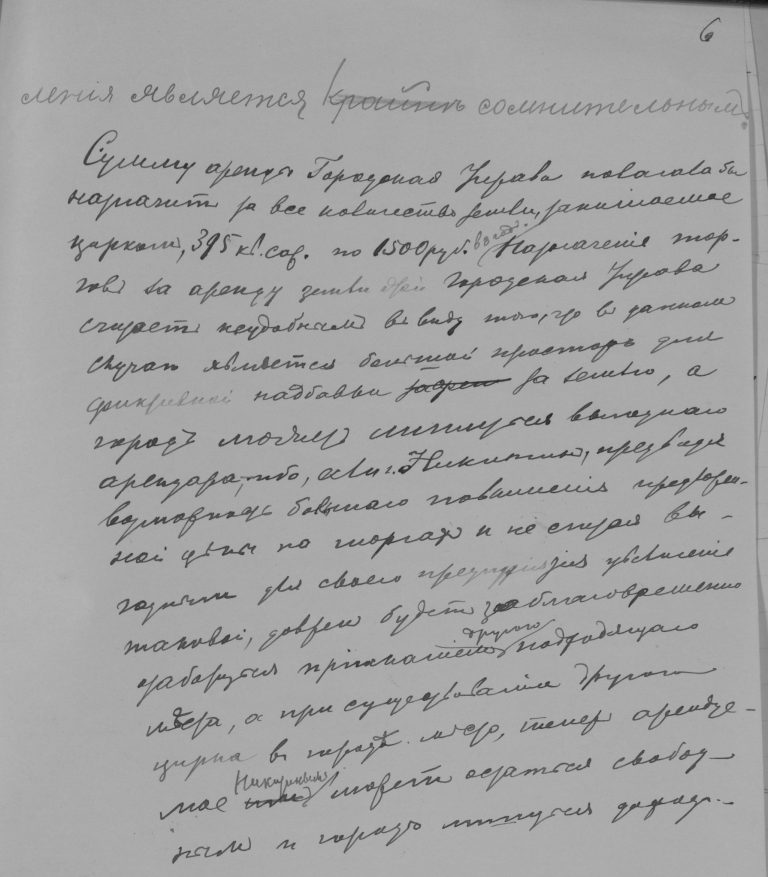 6
ленія является крайнѣ сомнительнымъ.
Сумму аренды Городская Управа полагала бы
назначить за все количество земли, занимаемое
циркомъ, 395 кв. саж. по 1500 руб. въ годъ. Назначеніе тор-
говъ на аренду земли Городская Управа
считаетъ неудобнымъ въ виду того, что въ данномъ
случаѣ является большой просторъ для
фиктивной надбавки за землю, а
городъ можетъ лишиться выгоднаго
арендатора, ибо, г. Никитинъ, предвидя
возможность большаго повышенія предложен-
ной цѣны на торгахъ и не считая вы-
годнымъ для своего предпріятія увѣличеніе
таковой, долженъ будетъ заблаговременно
озаботиться пріисканіемъ другого подходящаго
мѣста, а при существованіи другого
цирка въ городѣ мѣсто, теперь арендуе-
мое Никитинымъ можетъ остаться свобод-
нымъ и городъ лишится